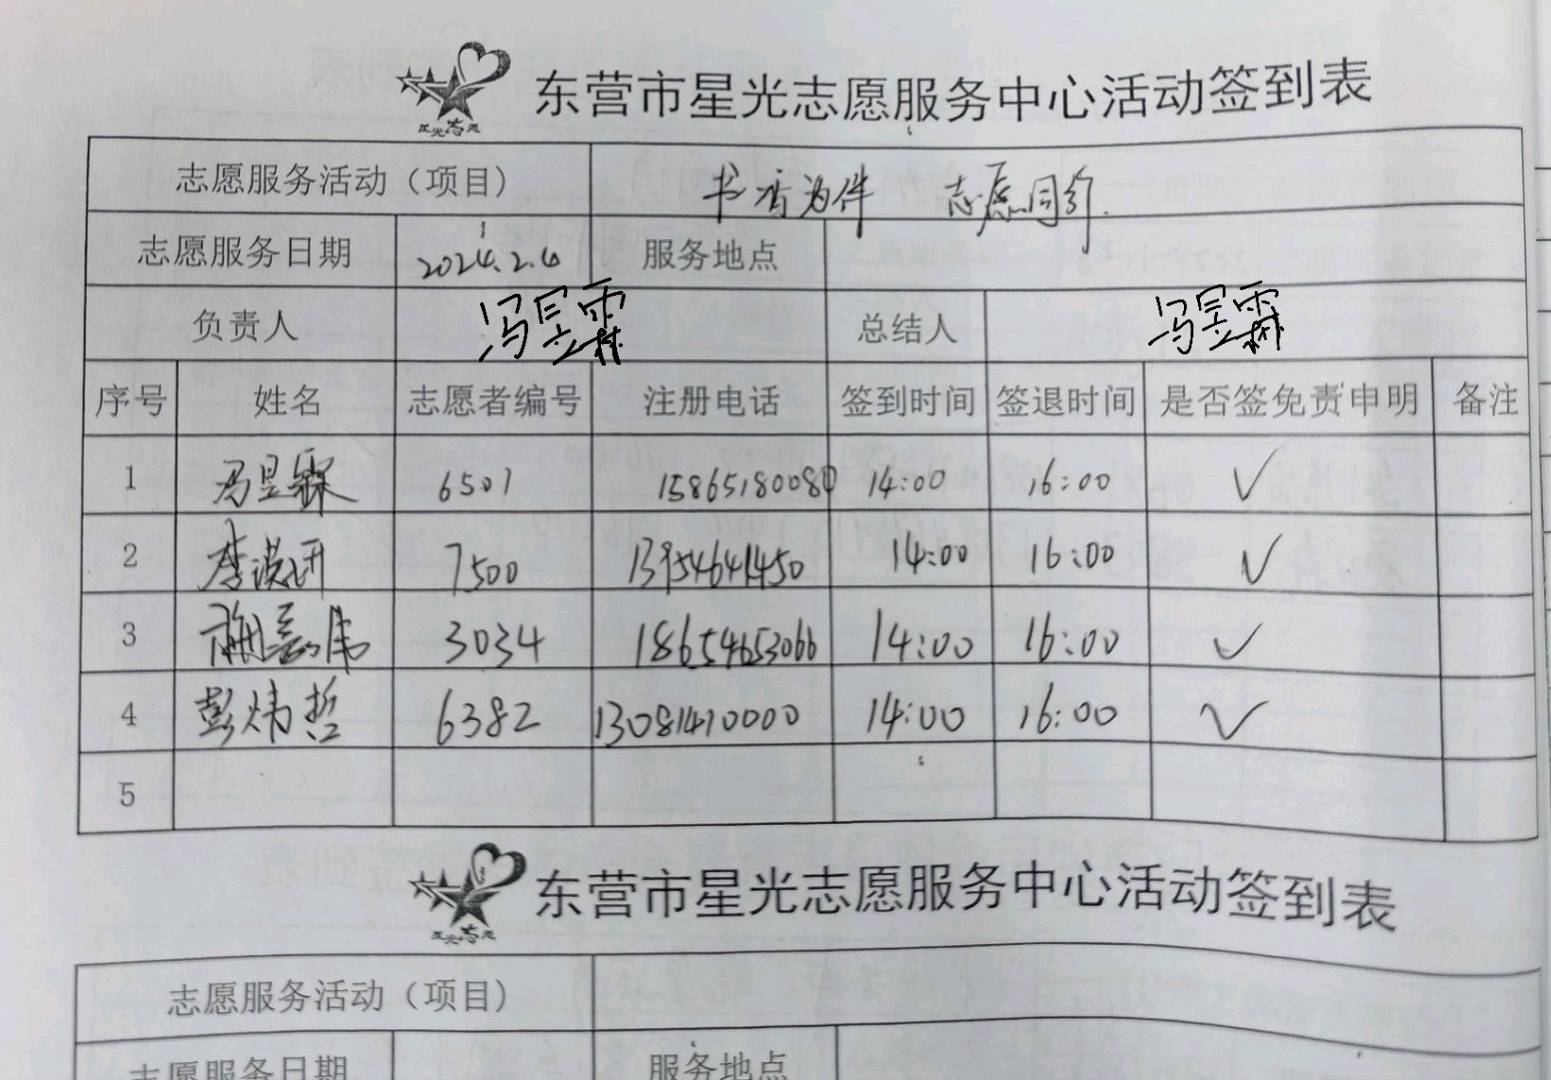 东营市星光志愿服务中心活动签到表
志愿服务活动（项目） 书香为伴 志愿同行.
志愿服务日期 2024.2.4 服务地点
负责人 冯昱霖 总结人 冯昱霖
序号 姓名 志愿者编号 注册电话 签到时间 签退时间 是否签免责申明 备注
1 冯昱霖 6501 15865180080 14:00 16:00 ✓
2 李淏研 7500 13954641450 14:00 16:00 ✓
3 3034 18654653066 14:00 16:00 ✓
4 彭炜哲 6382 13081410000 14:00 16:00 ✓
5
东营市星光志愿服务中心活动签到表
志愿服务活动（项目）
志愿服务日期 服务地点